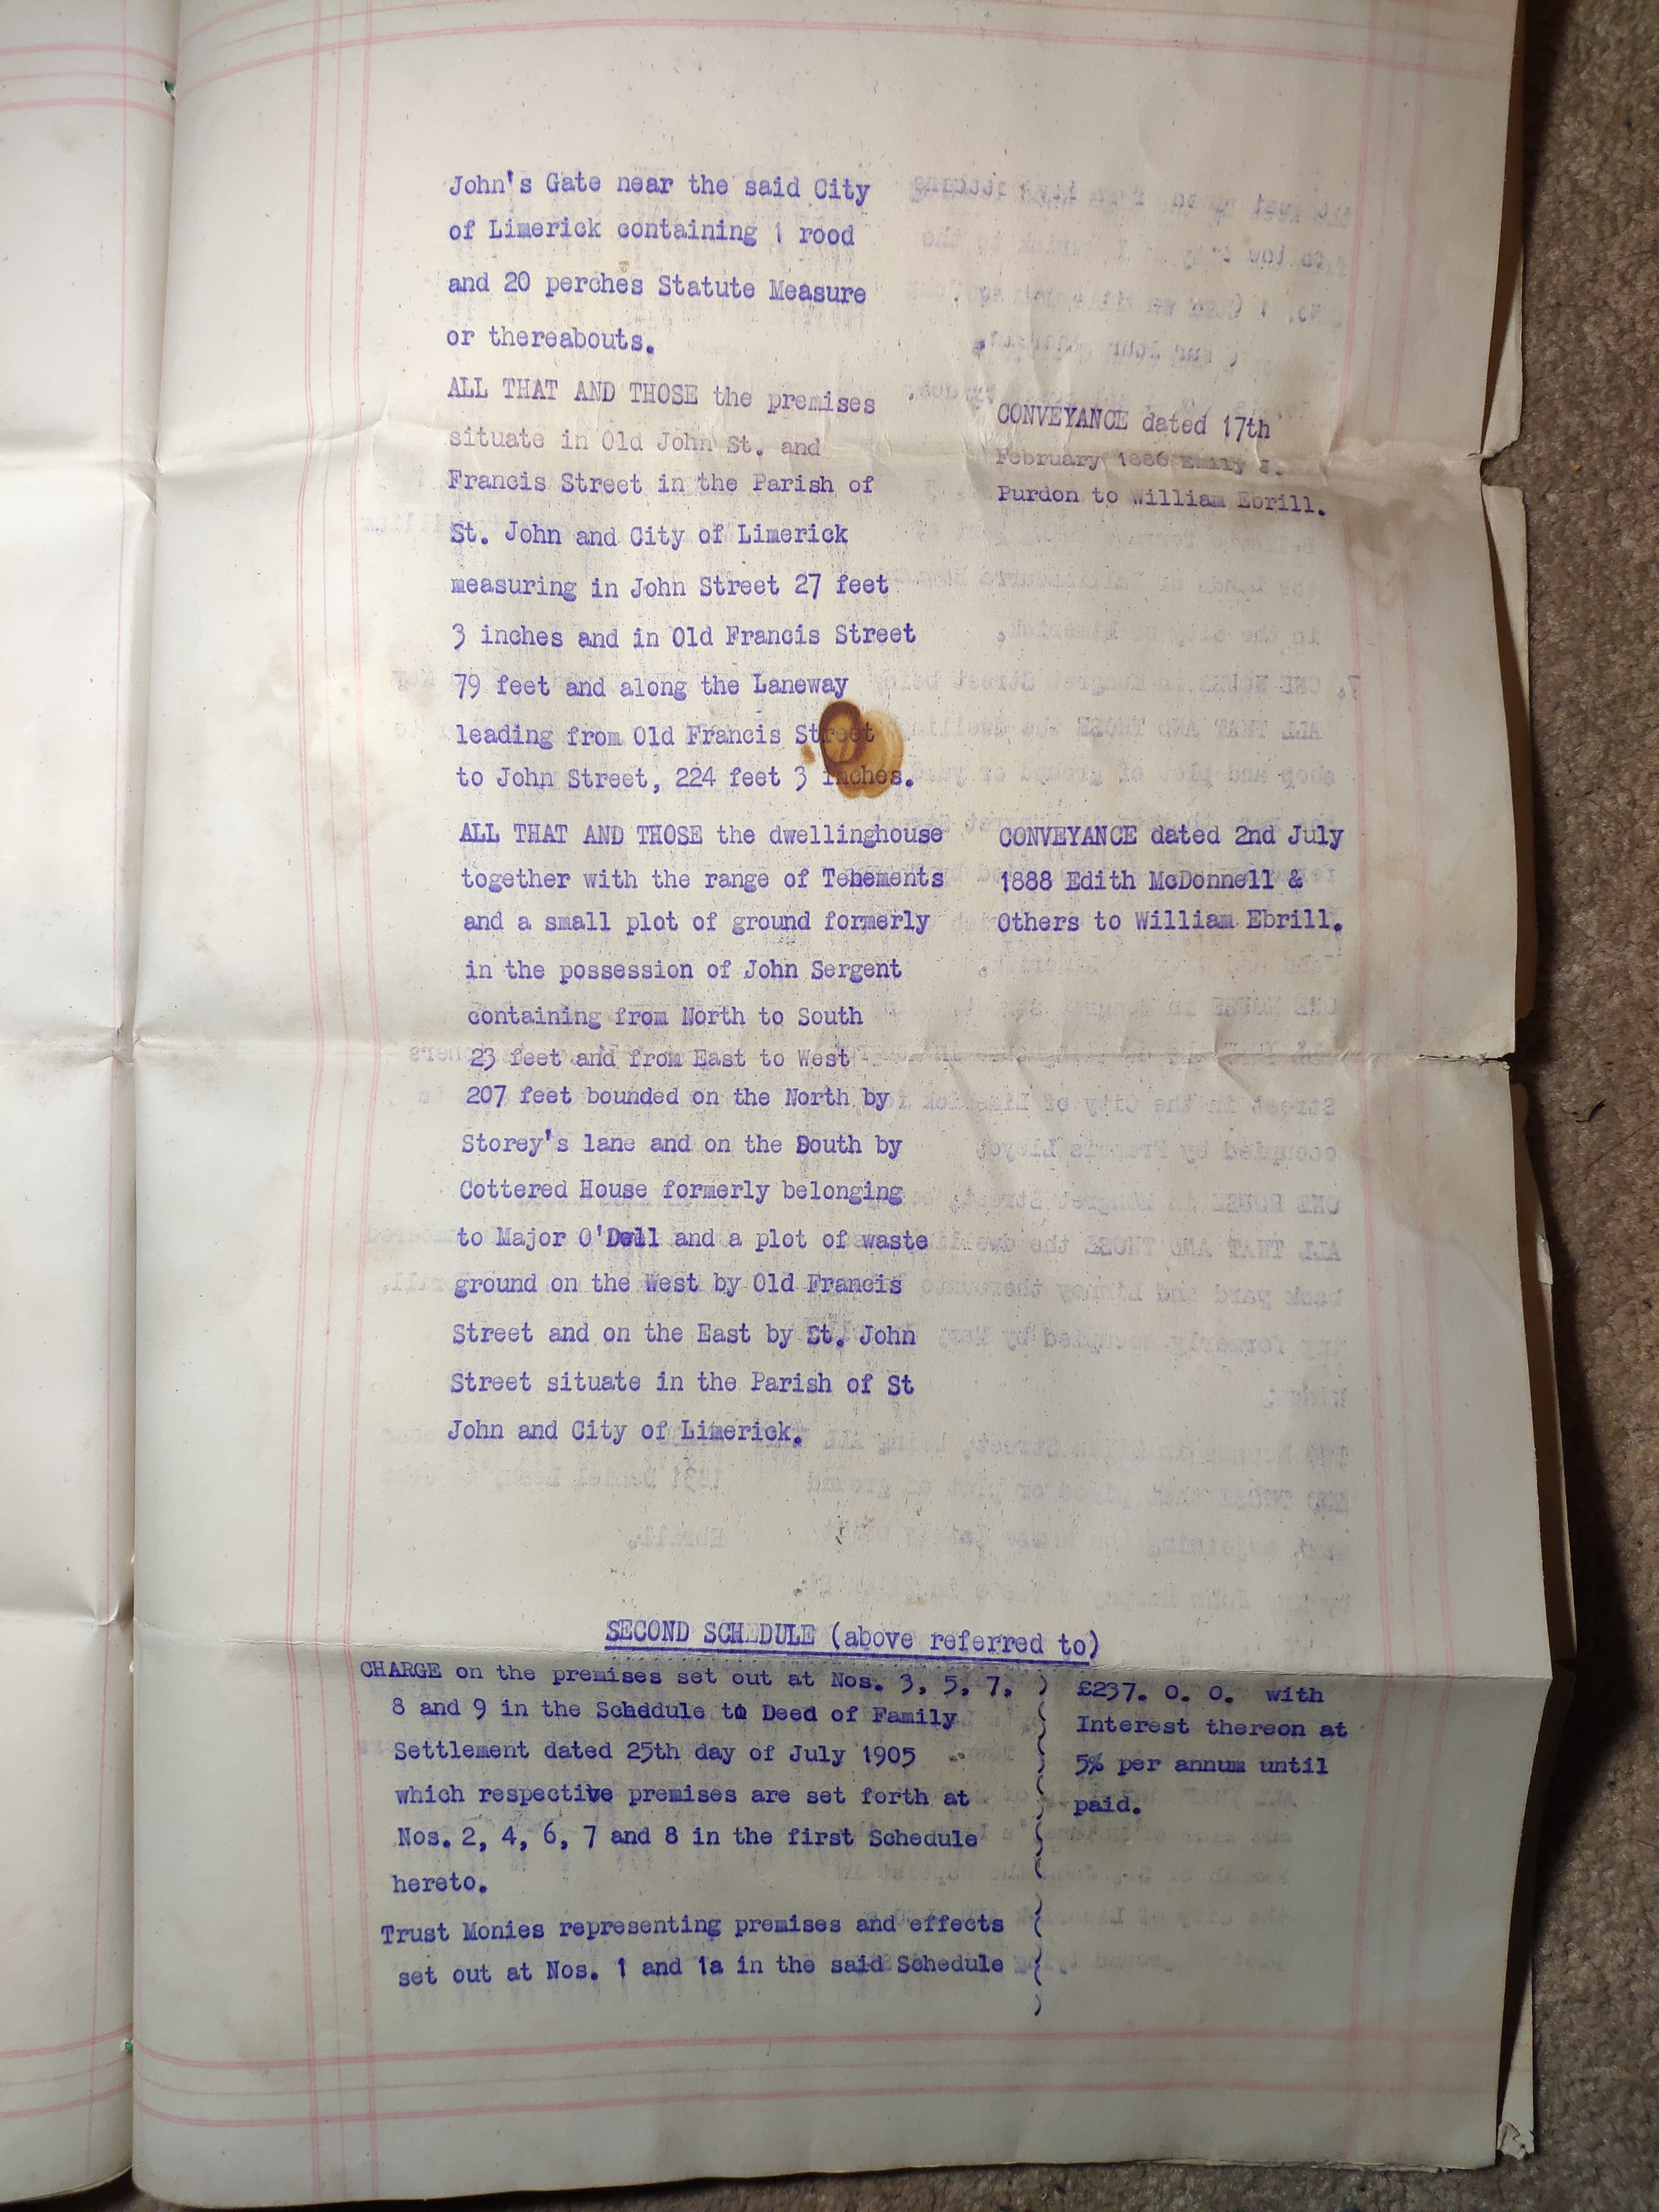 John's Gate near the said City
of Limerick containing 1 rood
and 20 perches Statute Measure
or thereabouts.
ALL THAT AND THOSE the premises
situate in Old John St. and
Francis Street in the Parish of
St. John and City of Limerick
measuring in John Street 27 feet
3 inches and in Old Francis Street
79 feet and along the Laneway
leading from Old Francis Street
to John Street, 224 feet 3 inches.
CONVEYANCE dated 17th
February 1886 Emily J.
Purdon to William Ebrill.
ALL THAT AND THOSE the dwellinghouse
together with the range of Tenements
and a small plot of ground formerly
in the possession of John Sergent
containing from North to South
23 feet and from East to West
207 feet bounded on the North by
Storey's lane and on the South by
Cottered House formerly belonging
to Major O'Dell and a plot of waste
ground on the West by Old Francis
Street and on the East by St. John
Street situate in the Parish of St
John and City of Limerick.
CONVEYANCE dated 2nd July
1888 Edith McDonnell &
Others to William Ebrill.
SECOND SCHEDULE (above referred to)
CHARGE on the premises set out at Nos. 3, 5, 7,
8 and 9 in the Schedule to Deed of Family
Settlement dated 25th day of July 1905
which respective premises are set forth at
Nos. 2, 4, 6, 7 and 8 in the first Schedule
hereto.
£237. 0. 0. with
Interest thereon at
5% per annum until
paid.
Trust Monies representing premises and effects
set out at Nos. 1 and 1a in the said Schedule